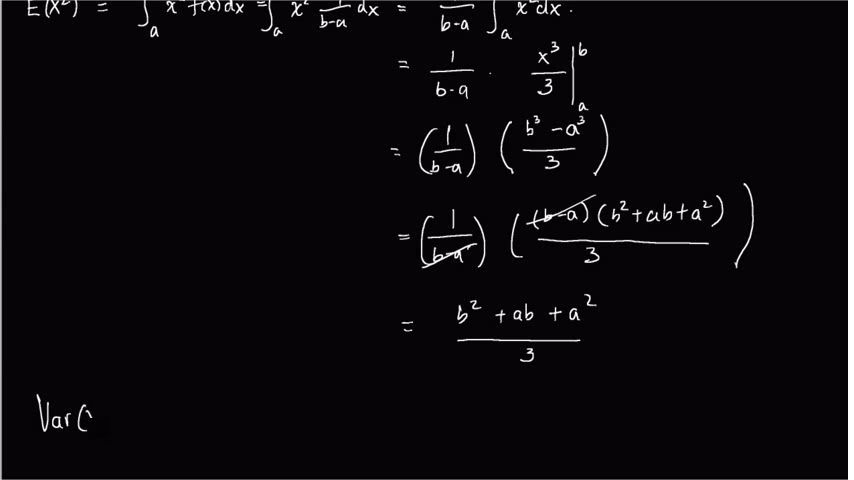 E(X²) = ∫ₐ x² f(x) dx = ∫ₐ x² 1/(b-a) dx = /(b-a) ∫ₐ x² dx.
= 1/(b-a) · x³/3 |ₐᵇ
= (1/(b-a)) ((b³ - a³)/3)
= (1/(b-a)) ((b-a)(b² + ab + a²)/3)
= (b² + ab + a²)/3
Var(